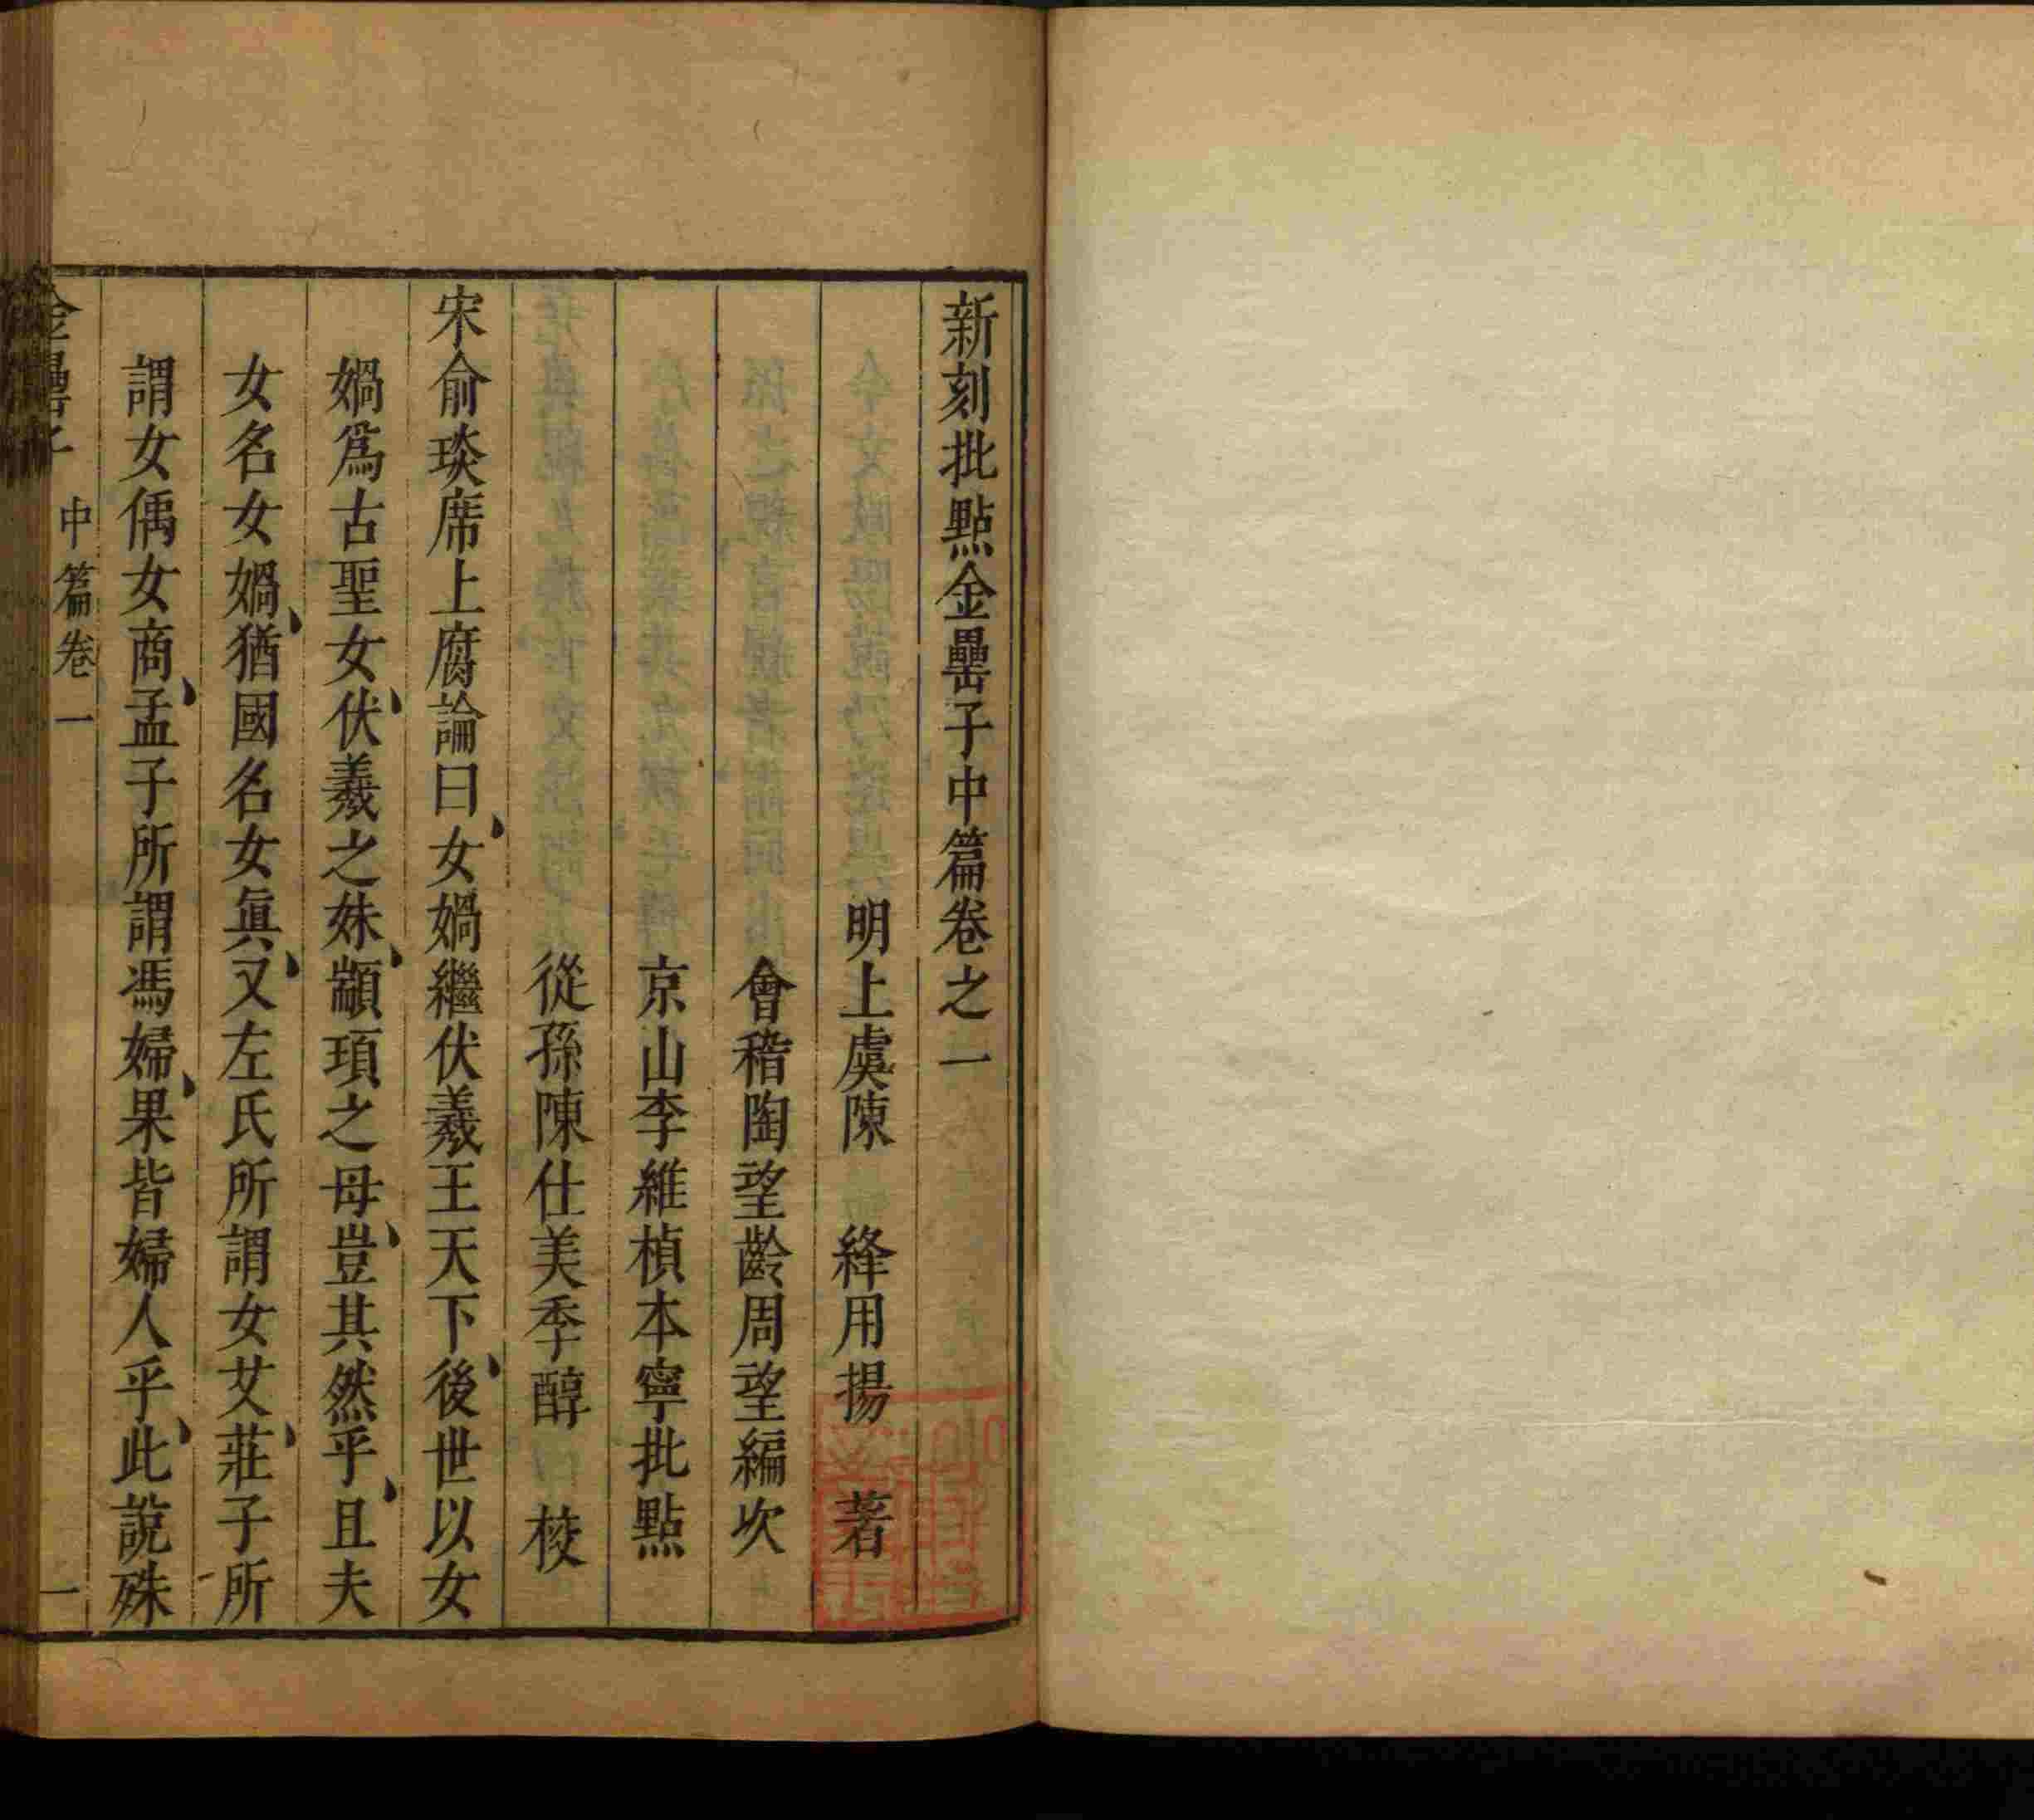 新刻批點金罍子中篇卷之一
明上虞陳 絳用揚 著
會稽陶望齡周望編次
京山李維楨本寧批點
從孫陳仕美季醇 校
宋俞琰席上腐論曰、女媧繼伏羲王天下、後世以女
媧爲古聖女、伏羲之妹、顓頊之母、豈其然乎、且夫
女名女媧、猶國名女眞、又左氏所謂女艾、莊子所
謂女偊女商、孟子所謂馮婦、果皆婦人乎、此說殊
金罍子 中篇卷一 一